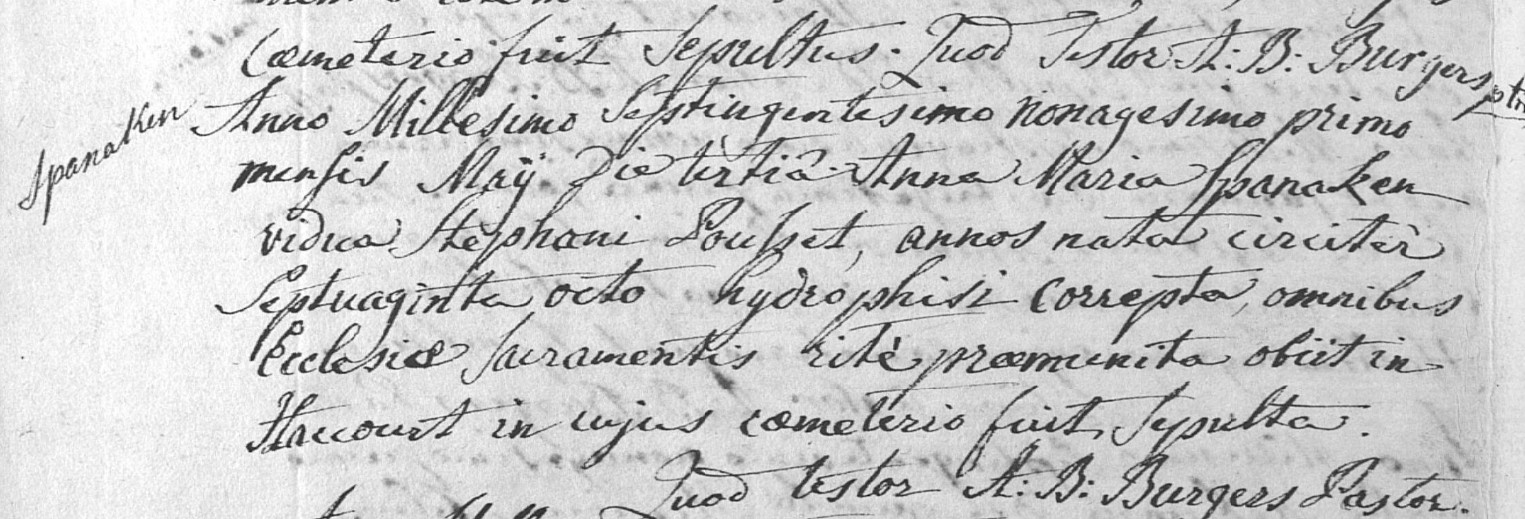 Cæmeterio fuit Sepultus. Quod Testor A: B: Burgers
Spanaken
Anno Millesimo Septingentesimo nonagesimo primo
mensis Maÿ Die tertiâ Anna Maria Spanaken
vidua Stephani Pousset, annos nata circitèr
Septuaginta octo hydrophisi correpta, omnibus
Ecclesiæ Sacramentis ritè præmunita obiit in
Haccourt in cujus cæmeterio fuit Sepulta.
Quod testor A: B: Burgers Pastor.